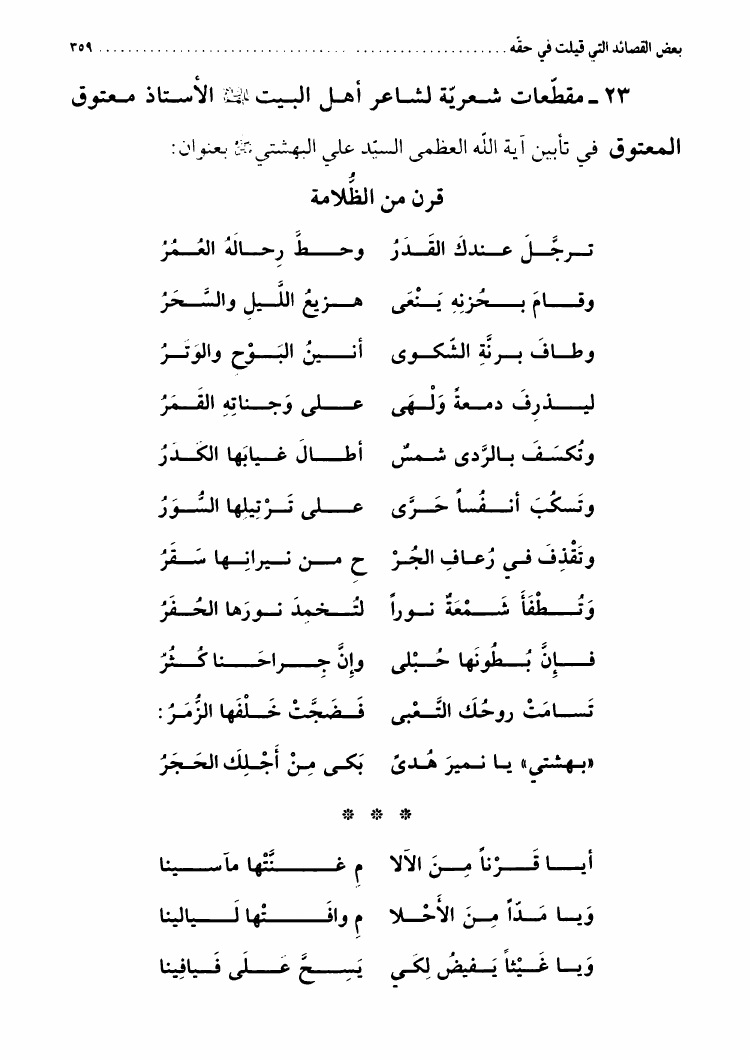 بعض القصائد التي قيلت في حقّه ........................................................ ٣٥٩
٢٣ ـ مقطّعات شعريّة لشاعر أهل البيت الأستاذ معتوق
المعتوق في تأبين آية اللّه العظمى السيّد علي البهشتي بعنوان:
قرن من الظُّلامة
ترجَّلَ عندكَ القَدَرُ وحطَّ رِحالَهُ العُمُرُ
وقامَ بحُزنِهِ يَنْعَى هزيعُ اللَّيلِ والسَّحَرُ
وطافَ برنَّةِ الشّكوى أنينُ البَوْحِ والوَتَرُ
ليذرِفَ دمعةً وَلْهَى على وَجناتِهِ القَمَرُ
وتُكسَفَ بالرَّدى شمسٌ أطالَ غيابَها الكَدَرُ
وتَسكُبَ أنفُساً حَرَّى على تَرْتيلِها السُّوَرُ
وتَقْذِفَ في رُعافِ الجُرْ حِ من نيرانِها سَقَرُ
وَتُطْفَأَ شَمْعَةٌ نوراً لتُخمِدَ نورَها الحُفَرُ
فإنَّ بُطونَها حُبْلى وإنَّ جِراحَنا كُثُرُ
تَسامَتْ روحُكَ التَّعْبى فَضَجَّتْ خَلْفَها الزُّمَرُ:
«بهشتي» يا نميرَ هُدىً بَكى مِنْ أَجْلِكَ الحَجَرُ
* * *
أيا قَرْناً مِنَ الآلا مِ غنَّتْها مآسينا
وَيا مَدّاً مِنَ الأَحْلا مِ وافَتْها لَيالينا
وَيا غَيْثاً يَفيضُ لِكَي يَسِحَّ عَلى فَيافِينا